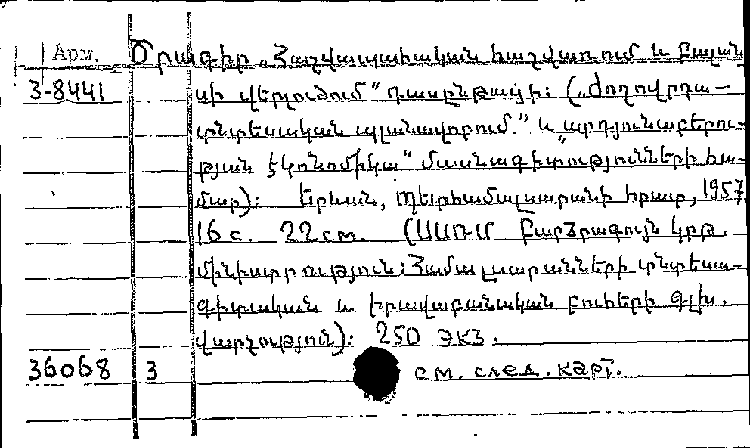 Арм. Ծրագիր „Հաշվապահական հաշվառում և բալան
3-8441 սի վերլուծում" դասընթացի: („Ժողովրդա-
տնտեսական պլանավորում." և „արդյունաբերու-
թյան էկոնոմիկա" մասնագիտությունների հա-
մար): Երևան, Պետհամալսարանի հրատ, 1957.
16 с. 22 см. (ՍՍՌՄ Բարձրագույն կրթ.
մինիստրություն: Համալսարանների տնտեսա-
գիտական և իրավաբանական բուհերի գլխ.
վարչություն): 250 экз.
36068 3 см. след. карт.